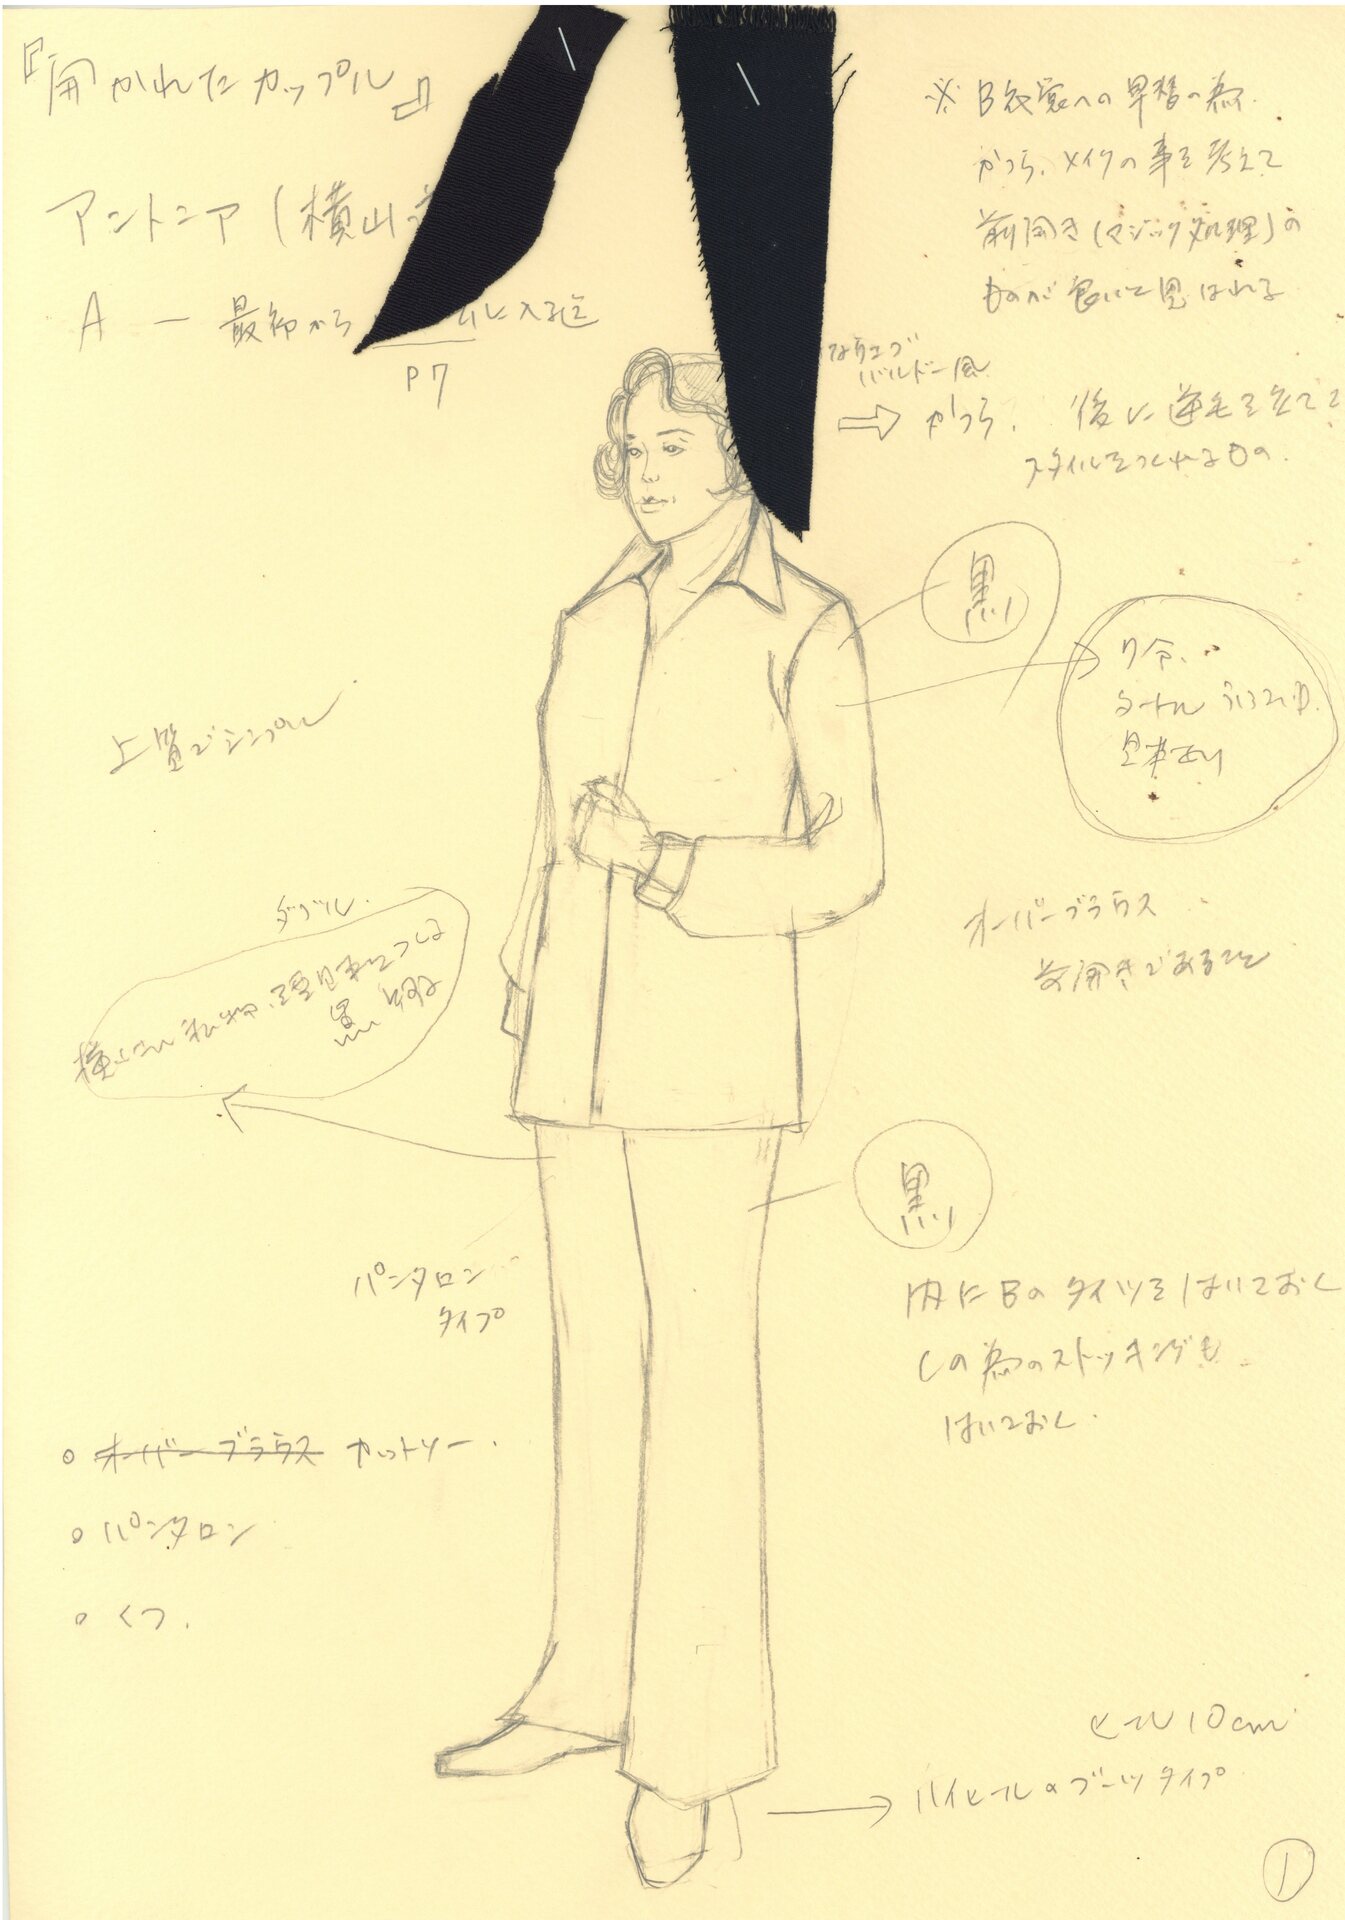 『開かれたカップル』
アントニア (横山
A ― 最初から に入る迄
P7
※ B衣裳への早替の為、
かつら、メイクの事を考えて
前開き(マジック処理)の
ものが良いと思はれる
なウエーブ
バルドー風
⇨ かつら. 後に逆毛を立てて
スタイルをつくれるもの.
黒
タートル
見本あり
上質でシンプル
オーバーブラウス
前開きであること
ダブル.
黒
黒
パンタロン
タイプ
内にBのタイツをはいておく
Cの為のストッキングも
はいておく.
○ オーバーブラウス カットソー.
○ パンタロン
○ くつ.
ヒール10cm
→ ハイヒールのブーツタイプ
①